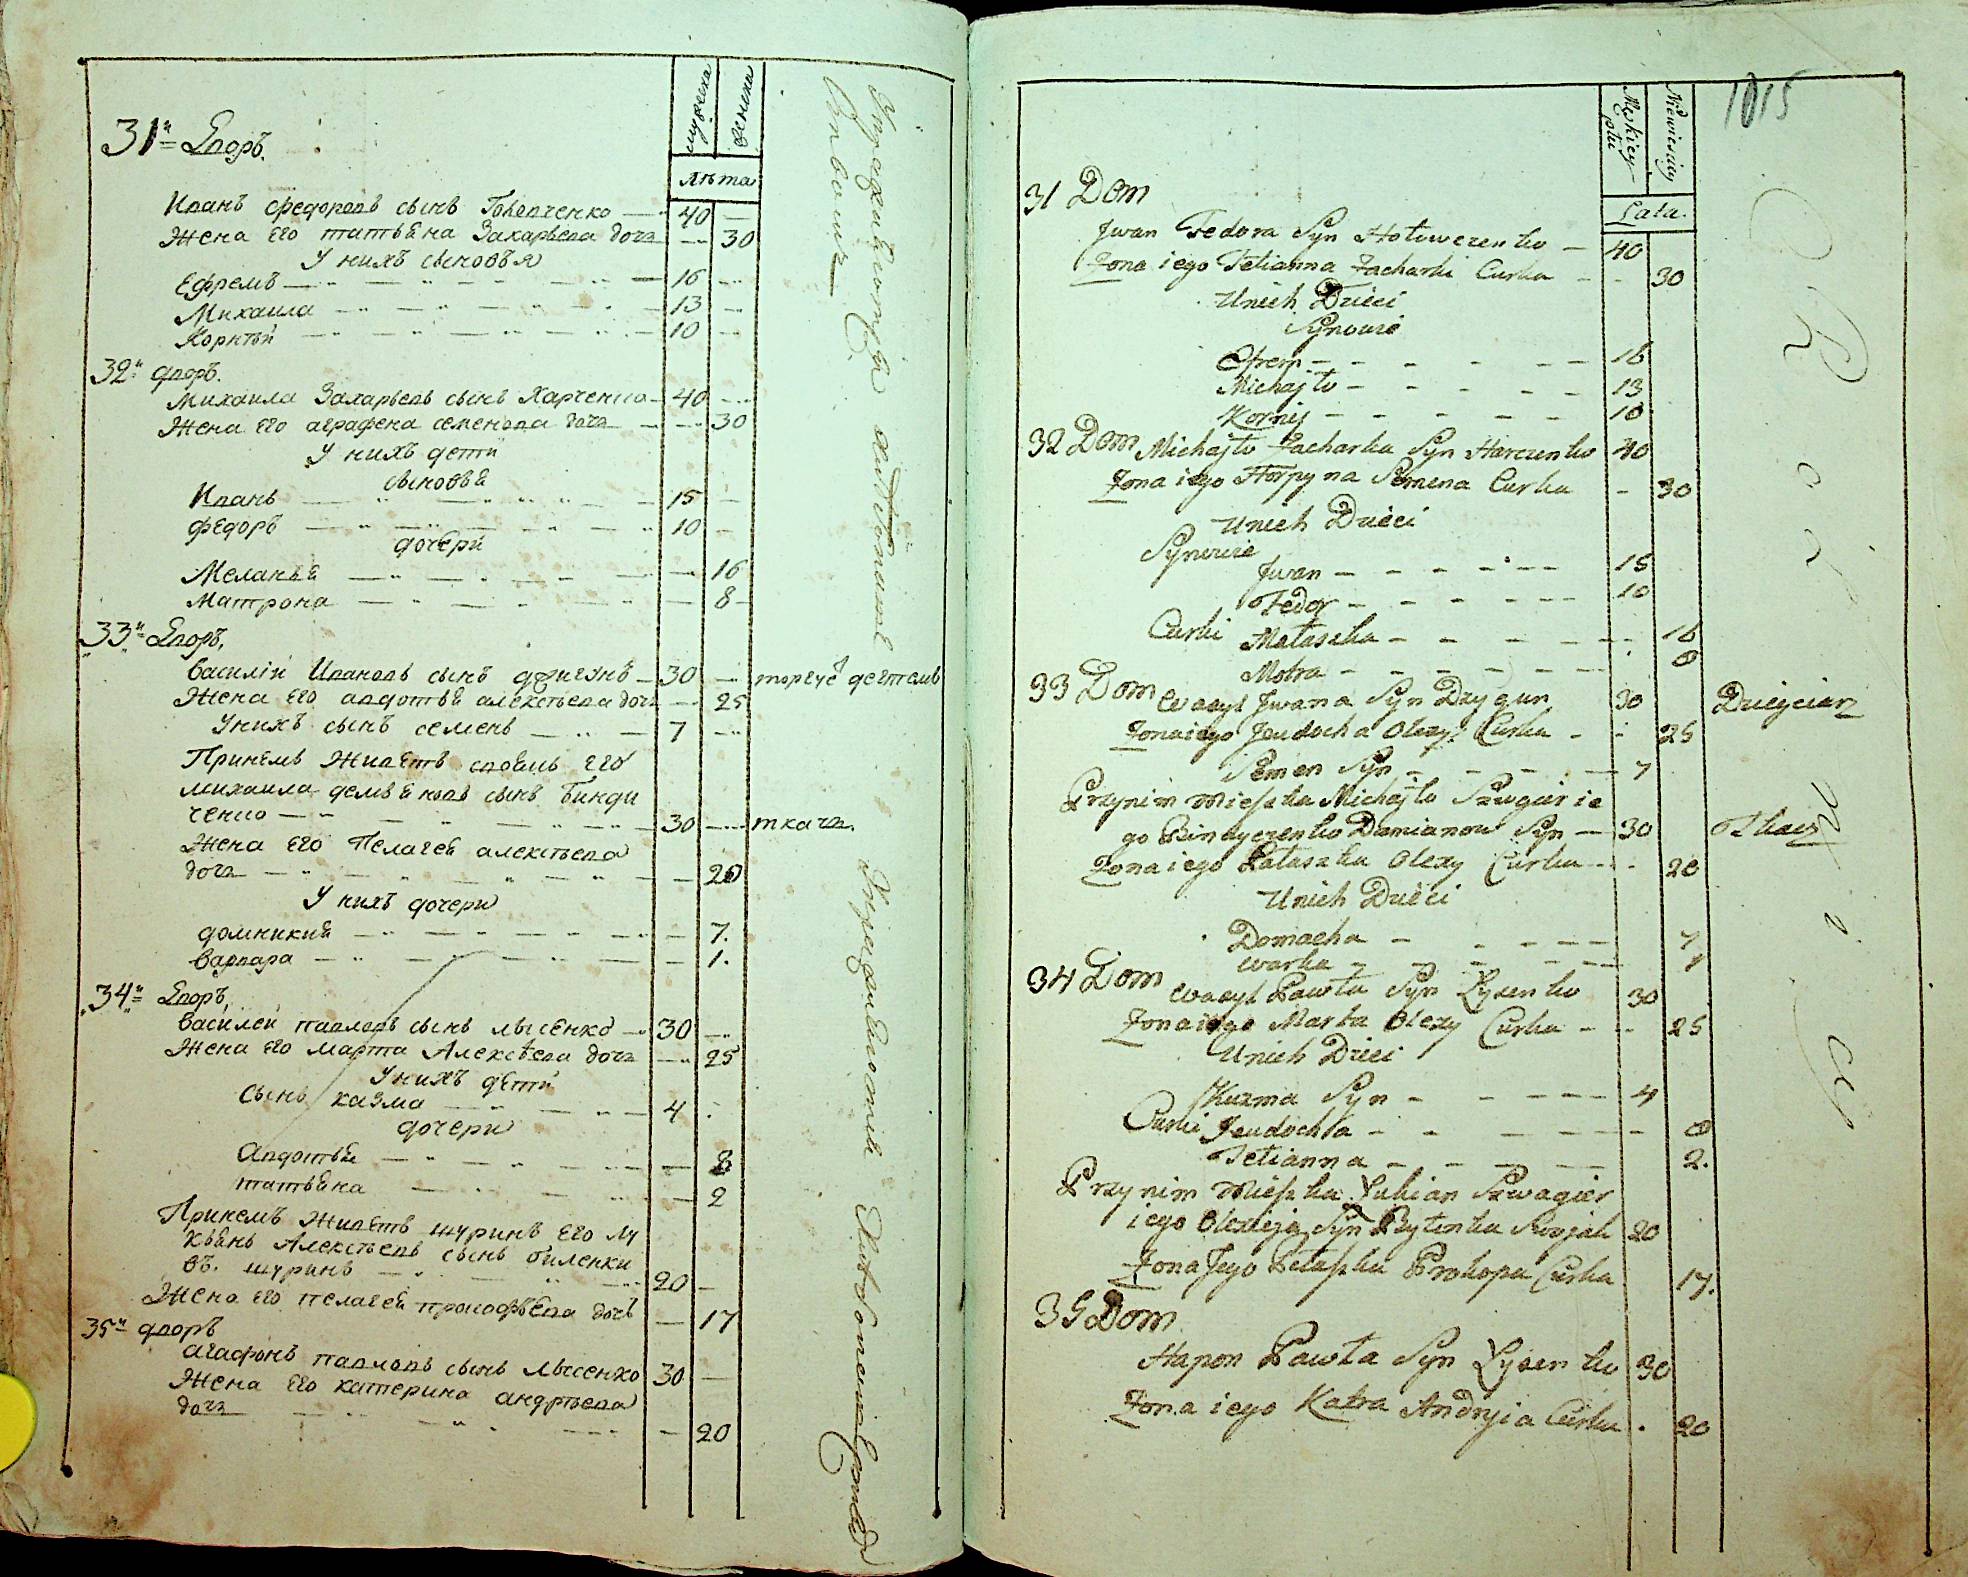 мужеска
женска
лѣта
31й Дворъ.
Иванъ Федоровъ сынъ Головченко 40
Жена его татьяна Захарьева дочь 30
У нихъ сыновья
Ефремъ 16
Михаила 13
Корнѣй 10
32й дворъ.
Михаила Захарьевъ сынъ Харченко 40
Жена его аграфена семенова дочь 30
У нихъ дети
сыновья
Иванъ 15
Федоръ 10
дочери
Меланья 16
Матрона 8
33й Дворъ.
Василiй Ивановъ сынъ дзигунъ 30 торгуе дегтемъ
Жена его авдотья алексѣева дочь 25
У нихъ сынъ семенъ 7
Принемъ Живетъ своякъ его
михаила демьяновъ сынъ Бинди
ченко 30 ткачь.
Жена его Пелагея алексѣева
дочь 20
У нихъ дочери
домникия 7.
Варвара 1.
34й Дворъ.
Василей павловъ сынъ лысенко 30
Жена его марта Алексѣева дочь 25
У нихъ дети
Сынъ казма 4
дочери
Авдотья 8
татьяна 2
Принемъ Живетъ шуринъ его лу
кьянъ Алексѣевъ сынъ биленки
въ. шуринъ 20
Жена его пелагея прокофьева дочь 17
35й дворъ
агафонъ павловъ сынъ лысенко 30
Жена его катерина андрѣева
дочь 20
1015
Męskiey płci
Niewieściey
Lata.
31 Dom
Jwan Fedora Syn Hołowczenko 40
Żona iego Tetianna Zacharki Curka 30
Unich Dzieci
Synowie
Ofrem 16
Michajło 13
Kornij 10
32 Dom Michajło Zacharka Syn Harczenko 40
Żona iego Horpyna Semena Curka 30
Unich Dzieci
Synowie
Jwan 15
Fedor 10
Curki Małaszka 16
Motra 8
33 Dom Wasyl Jwana Syn Dzygun 30 Dziegciarz
Żona iego Jeudocha Olexy Curka 25
Semen Syn 7
Przynim mieszka Michajło Szwagier ie
go Bindyczenko Damianow Syn 30 Tkacz
Żona iego Pałaszka Olexy Curka 20
Unich Dzieci
Domacha 7
Warka 1
34 Dom Wasyl Pawła Syn Łysenko 30
Żona iego Marta Olexy Curka 25
Unich Dzieci
Kuzma Syn 4
Curki Jeudocha 8
Tetianna 2.
Przynim mieszka Łukian Szwagier
iego Olexieja Syn Bytenka 20
Żona Jego Pełaszka Prokopa Curka 17.
35 Dom
Hapon Pawła Syn Łysenko 30
Żona iego Katra Andryia Curka 20